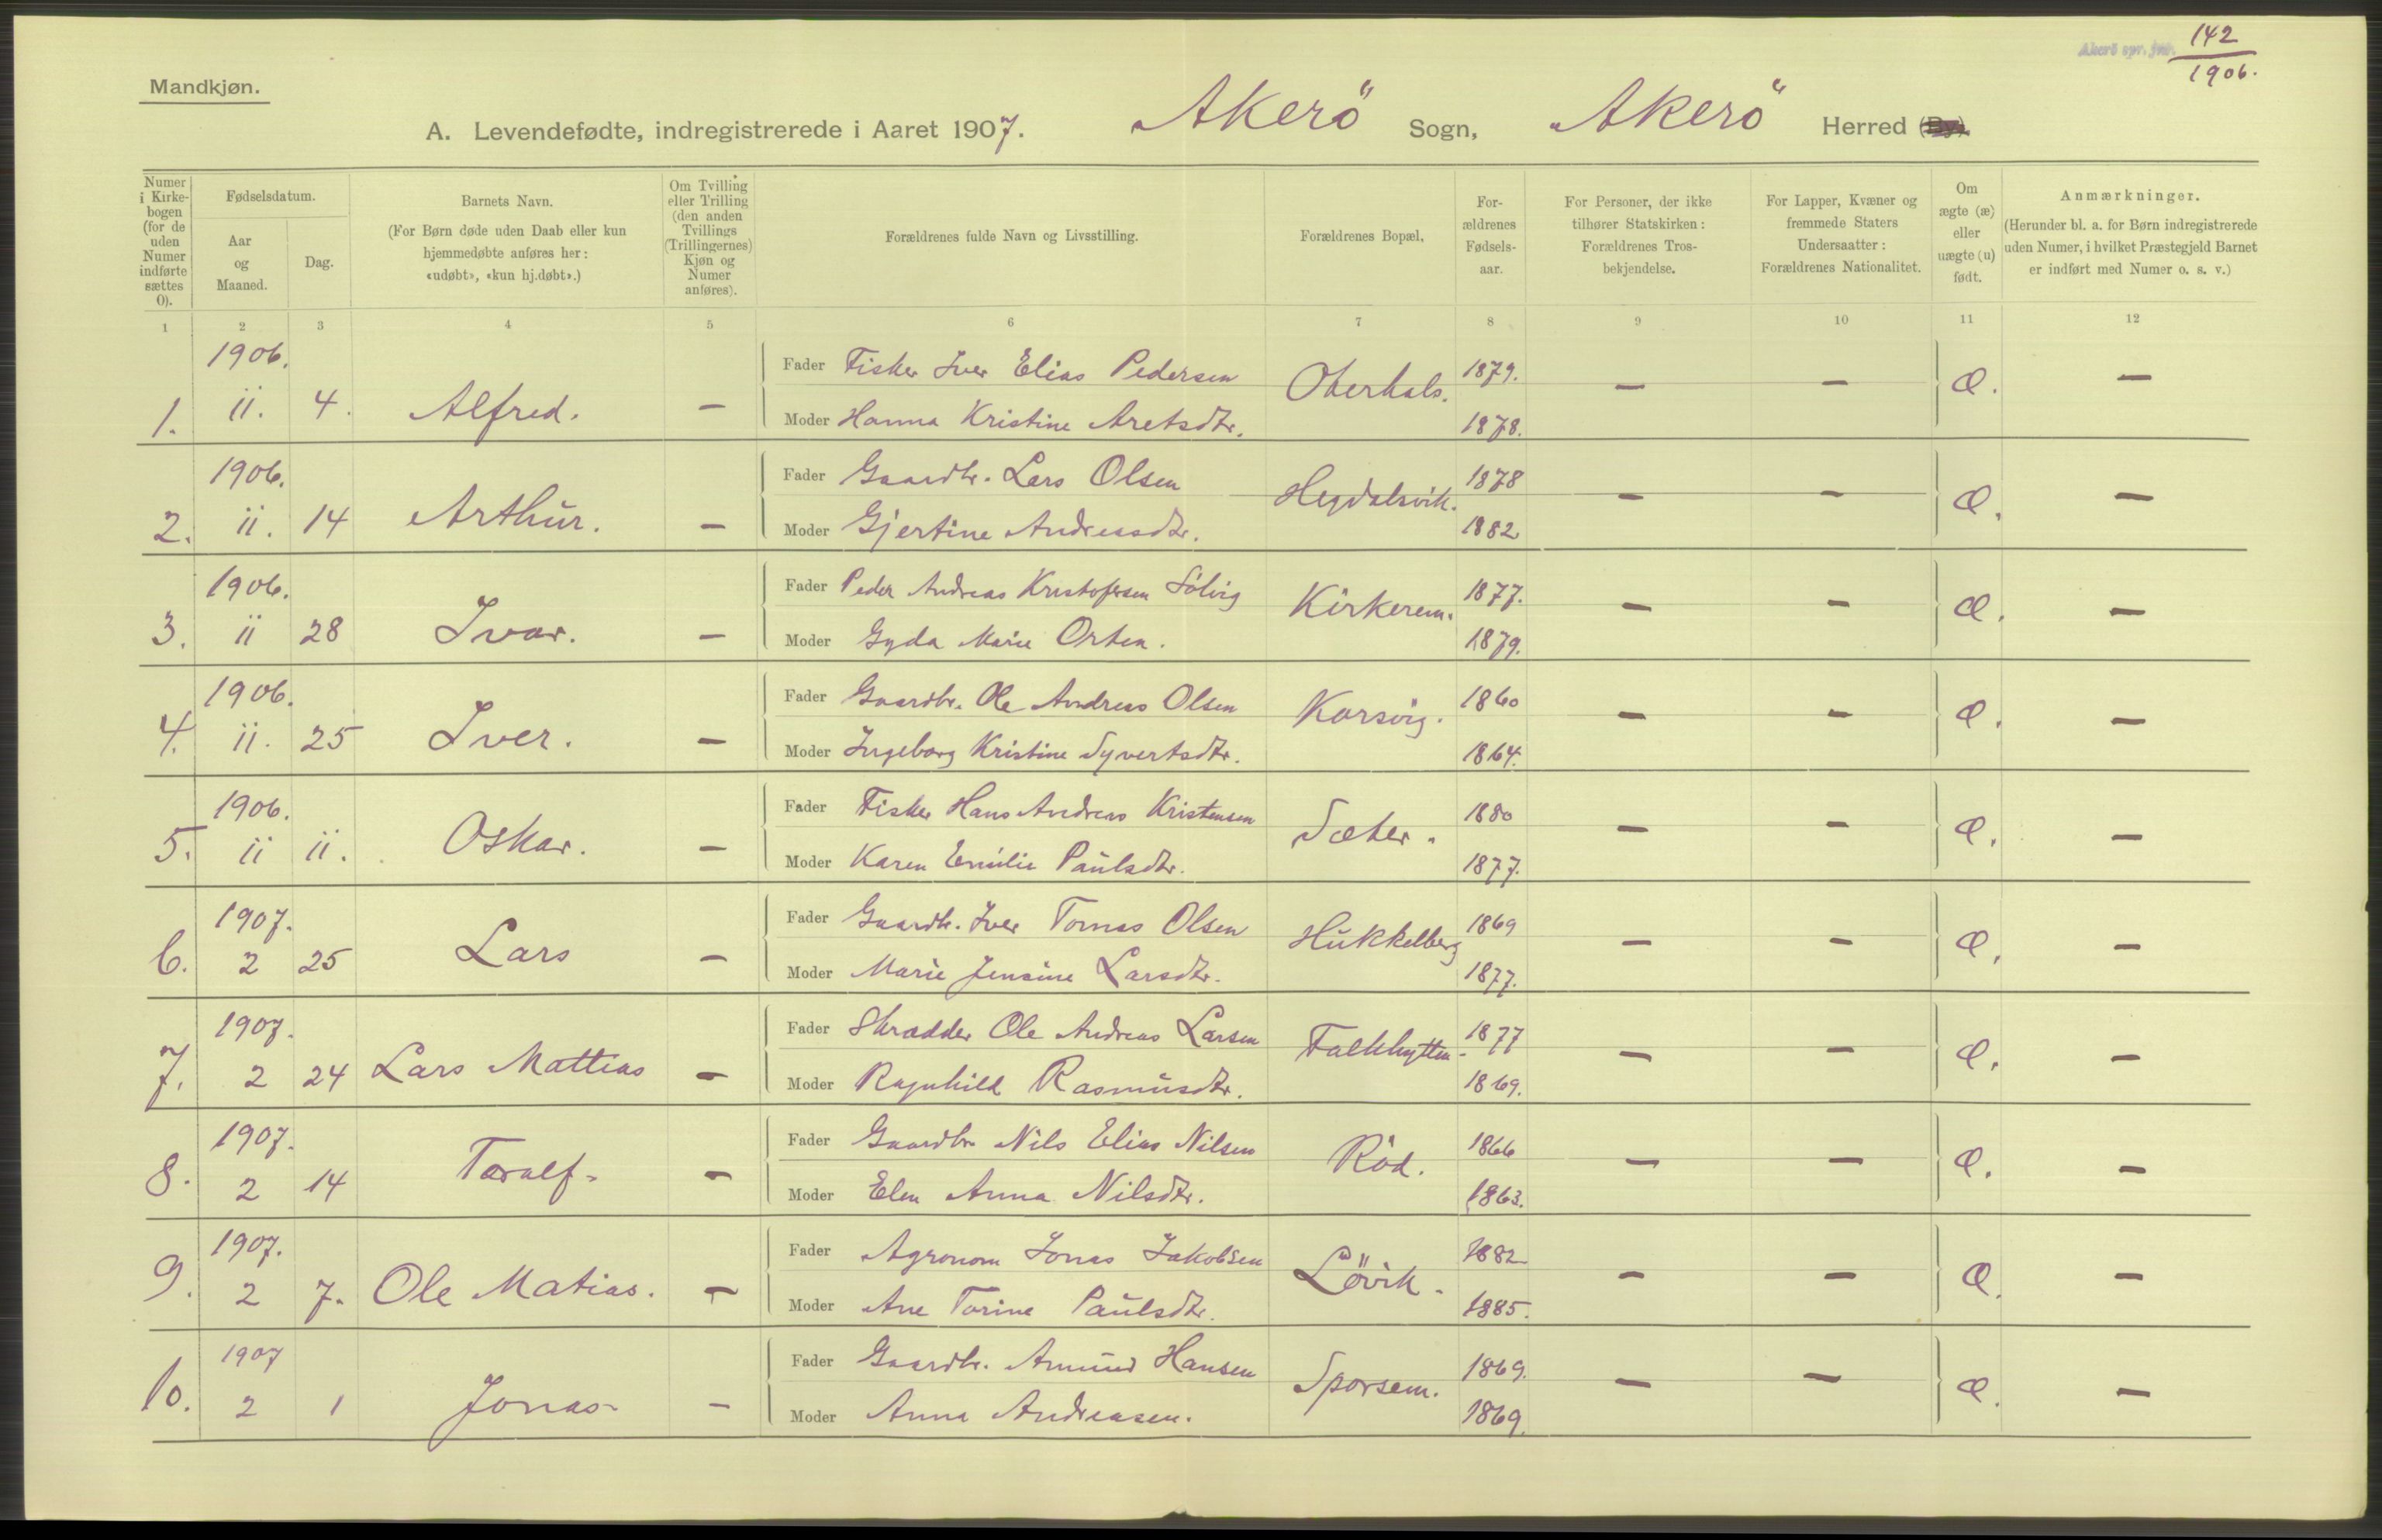 Akerö spr. jnr. 142
1906.
Mandkjøn.
A. Levendefødte, indregistrerede i Aaret 1907. Akerö Sogn, Akerö Herred (By).
Numer i Kirkebogen (for de uden Numer indførte sættes 0).
Fødselsdatum.
Aar og Maaned.
Dag.
Barnets Navn.
(For Børn døde uden Daab eller kun hjemmedøbte anføres her: «udøbt», «kun hj.døbt».)
Om Tvilling eller Trilling (den anden Tvillings (Trillingernes) Kjøn og Numer anføres).
Forældrenes fulde Navn og Livsstilling.
Forældrenes Bopæl,
Forældrenes Fødselsaar.
For Personer, der ikke tilhører Statskirken: Forældrenes Trosbekjendelse.
For Lapper, Kvæner og fremmede Staters Undersaatter: Forældrenes Nationalitet.
Om ægte (æ) eller uægte (u) født.
Anmærkninger.
(Herunder bl. a. for Børn indregistrerede uden Numer, i hvilket Præstegjeld Barnet er indført med Numer o. s. v.)
1 2 3 4 5 6 7 8 9 10 11 12
1906.
1. 11. 4. Alfred. —
Fader Fisker Iver Elias Pedersen Oterhals. 1879. — — æ. —
Moder Hanna Kristine Aretsdtr. 1878.
1906.
2. 11. 14 Arthur. —
Fader Gaardbr. Lars Olsen Hegdalsvik. 1878 — — æ. —
Moder Gjertine Andreasdtr. 1882
1906.
3. 11 28 Ivar. —
Fader Peder Andreas Kristofersen Sölvig Kirkerem. 1877. — — æ. —
Moder Gyda Marie Orten. 1879.
1906.
4. 11. 25 Iver. —
Fader Gaardbr. Ole Andreas Olsen Korsvig. 1860 — — æ. —
Moder Ingeborg Kristine Syvertsdtr. 1864.
1906.
5. 11 11. Oskar. —
Fader Fisker Hans Andreas Kristensen Sæter. 1880 — — æ. —
Moder Karen Emilie Paulsdtr. 1877.
1907.
6. 2 25 Lars —
Fader Gaardbr. Iver Tomas Olsen Hukkelberg 1869 — — æ. —
Moder Marie Jensine Larsdtr. 1877.
1907.
7. 2 24 Lars Mattias —
Fader Skrædder Ole Andreas Larsen Falkhytten 1877 — — æ. —
Moder Ragnhild Rasmusdtr. 1869.
1907.
8. 2 14 Toralf. —
Fader Gaardbr Nils Elias Nilsen Röd. 1866 — — æ. —
Moder Elen Anna Nilsdtr. 1863.
1907.
9. 2 7. Ole Matias. —
Fader Agronom Jonas Jakobsen Lövik. 1882 — — æ. —
Moder Ane Torine Paulsdtr. 1885.
1907
10. 2 1 Jonas —
Fader Gaardbr. Amund Hansen Sporsem. 1869. — — æ. —
Moder Anna Andreasen. 1869.